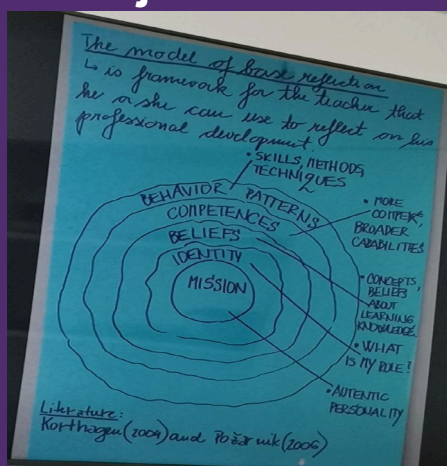 The model of base reflection
↳ is framework for the teacher that
he or she can use to reflect on his
professional development.
• SKILLS, METHODS,
TECHNIQUES
BEHAVIOR PATTERNS
COMPETENCES
BELIEFS
IDENTITY
MISSION
• MORE
BROADER
CAPABILITIES
• CONCEPTS,
BELIEFS
ABOUT
LEARNING
KNOWLEDGE.
• WHAT
IS MY ROLE?
• AUTENTIC
PERSONALITY
Literature:
Korthagen (2004) and Požarnik (2006)